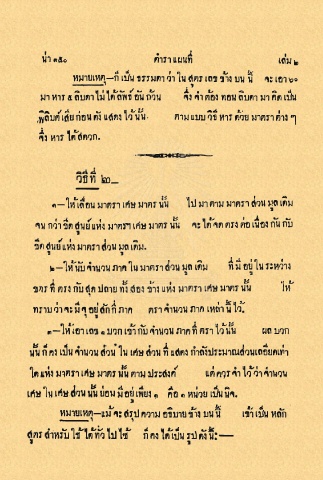 น่า ๓๕๐ ตำรา แผนที่ เล่ม ๒
หมายเหตุ—ก็ เป็น ธรรมดา ว่า ใน สูตร เลข ข้าง บน นี้ จะ เอา ๖๐
มา หาร ๕ ลิบดา ไม่ ได้ ลัพธ์ อัน ถ้วน จึ่ง จำ ต้อง ทอน ลิบดา มา คิด เป็น
พิลิบดา์ เสีย ก่อน ดัง แสดง ไว้ นั้น ตาม แบบ วิธี หาร ด้วย มาตรา ต่าง ๆ
จึ่ง หาร ได้ สดวก.
วิธี ที่ ๒—
๑—ให้ เลื่อน มาตรา เศษ มาตร นั้น ไป มา ตาม มาตรา ส่วน มูล เดิม
จน กว่า ขีด สูนย์ แห่ง มาตรา เศษ มาตร นั้น จะ ได้ จด ตรง ต่อ เนื่อง กัน กับ
ขีด สูนย์ แห่ง มาตรา ส่วน มูล เดิม.
๒—ให้ นับ จำนวน ภาค ใน มาตรา ส่วน มูล เดิม ที่ มี อยู่ ใน ระหว่าง
ขตร ที่ ตรง กับ สุด ปลาย ทั้ง สอง ข้าง แห่ง มาตรา เศษ มาตร นั้น ให้
ทราบ ว่า จะ มี ๆ อยู่ สัก กี่ ภาค ตรา จำนวน ภาค เหล่า นั้น ไว้.
๓—ให้ เอา เลข ๑ บวก เข้า กับ จำนวน ภาค ที่ ตรา ไว้ นั้น ผล บวก
นั้น ก็ คง เป็น จำนวน ส่วน ใน เศษ ส่วน ที่ แสดง กำลัง ประมาณ ส่วน เลอียด เท่า
ใด แห่ง มาตรา เศษ มาตร นั้น ตาม ประสงค์ แต่ ควร จำ ไว้ ว่า จำนวน
เศษ ใน เศษ ส่วน นั้น ย่อม มี อยู่ เพียง ๑ คือ ๑ หน่วย เป็น นิจ.
หมายเหตุ—แม้ จะ สรุป ความ อธิบาย ข้าง บน นี้ เข้า เป็น หลัก
สูตร สำหรับ ใช้ ได้ ทั่ว ไป ไซ้ ก็ คง ได้ เป็น รูป ดัง นี้:—